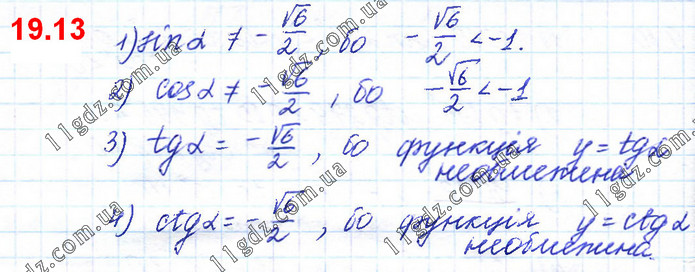 19.13
1) sin α ≠ -√6/2, бо -√6/2 < -1.
2) cos α ≠ -√6/2, бо -√6/2 < -1
3) tg α = -√6/2, бо функція y = tg α
необмежена.
4) ctg α = -√6/2, бо функція y = ctg α
необмежена.
11gdz.com.ua
11gdz.com.ua
11gdz.com.ua
11gdz.com.ua
11gdz.com.ua